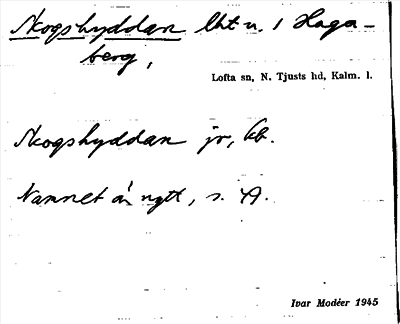 Skogshyddan lht u. 1 Haga-
berg,
Lofta sn, N. Tjusts hd, Kalm. l.
Skogshyddan jr, kb.
Namnet är nytt, s. A.
Ivar Modéer 1945